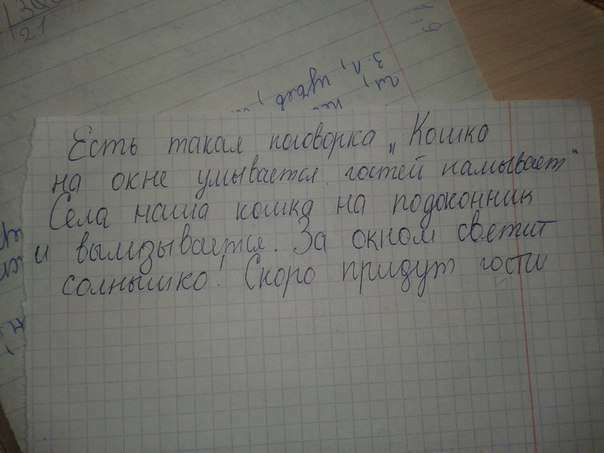 Есть такая поговорка „Кошка
на окне умывается гостей намывает"
Села наша кошка на подоконник
и вылизывается. За окном светит
солнышко! Скоро придут гости
21